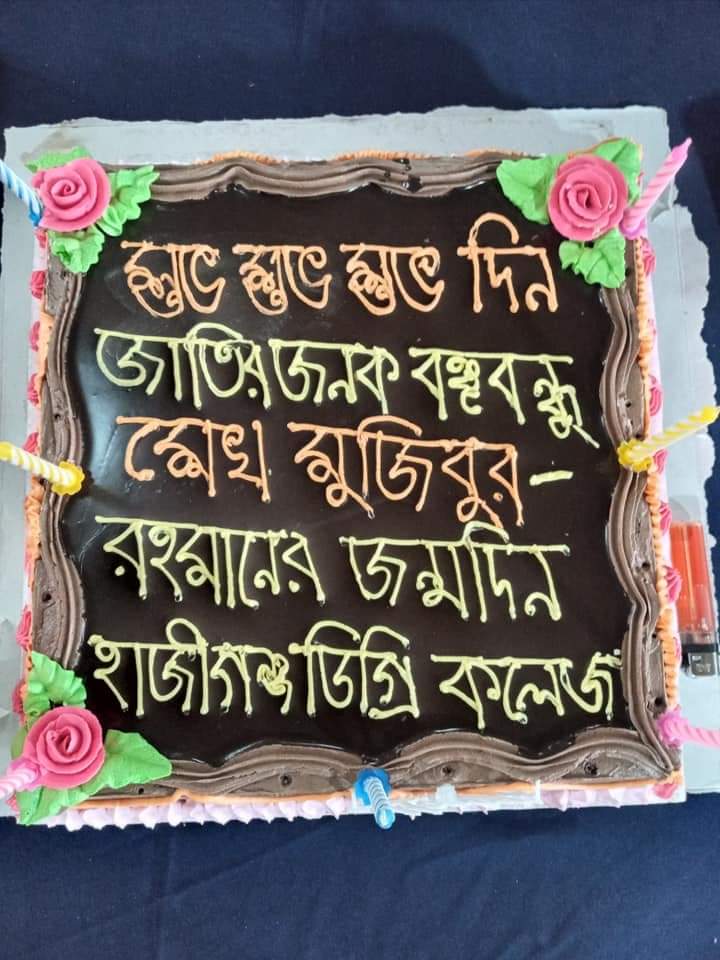 শুভ শুভ শুভ দিন
জাতির জনক বঙ্গবন্ধু
শেখ মুজিবুর-
রহমানের জন্মদিন
হাজীগঞ্জ ডিগ্রি কলেজ